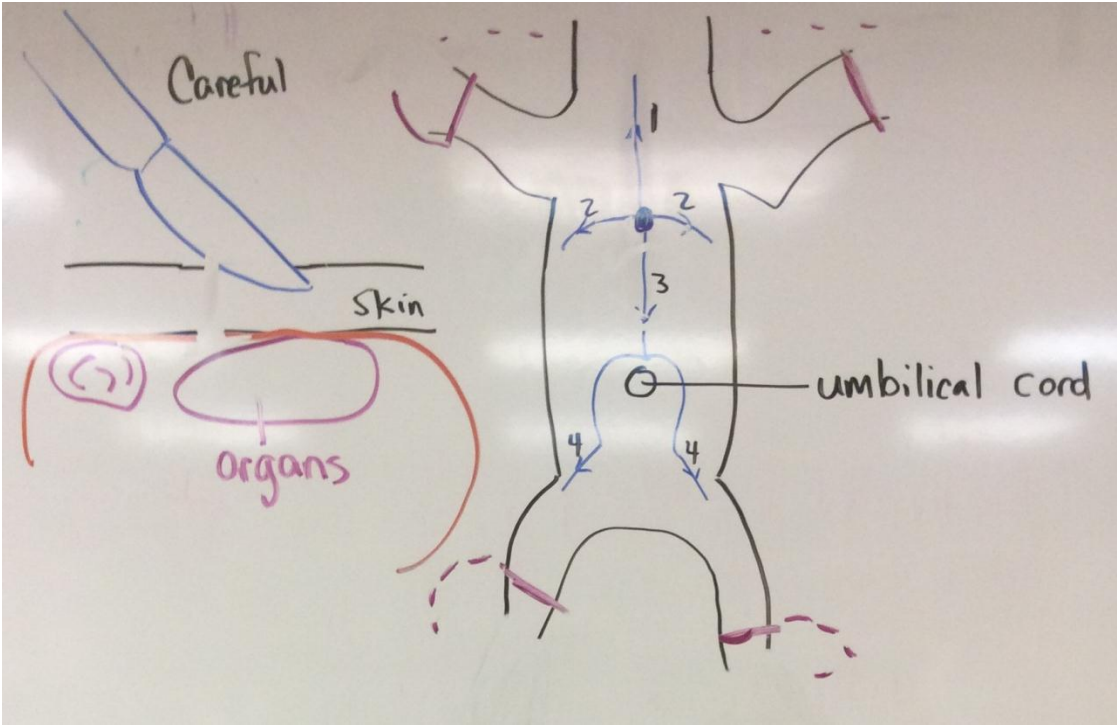 Careful
Skin
organs
1
2
2
3
umbilical cord
4
4